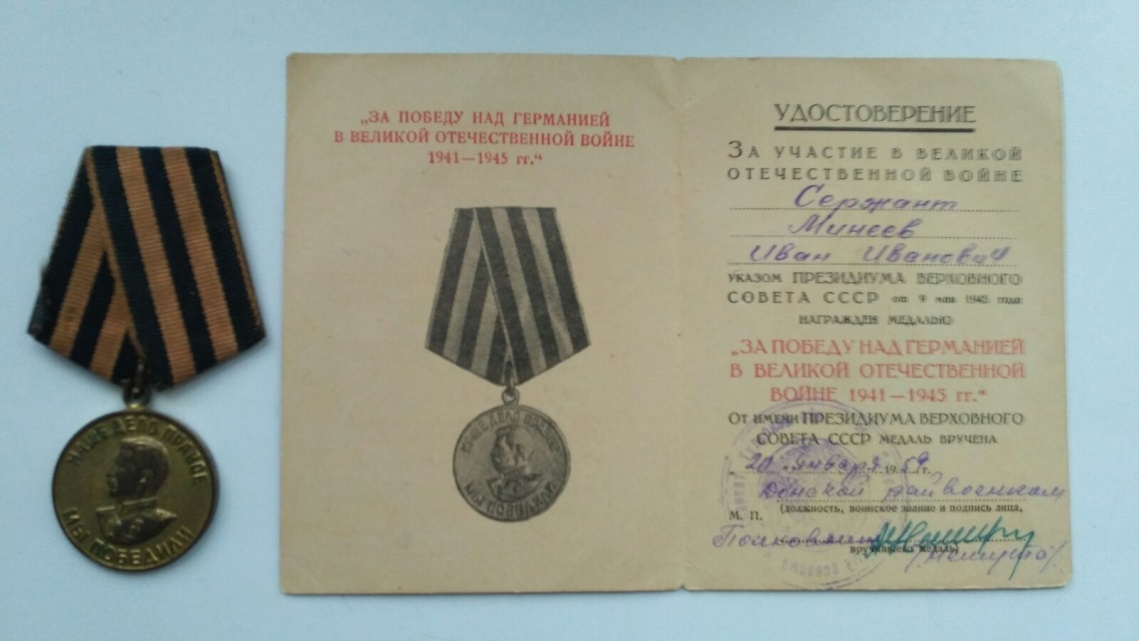 НАШЕ ДЕЛО ПРАВОЕ
МЫ ПОБЕДИЛИ
„ЗА ПОБЕДУ НАД ГЕРМАНИЕЙ
В ВЕЛИКОЙ ОТЕЧЕСТВЕННОЙ ВОЙНЕ
1941—1945 гг.“
НАШЕ ДЕЛО ПРАВОЕ
МЫ ПОБЕДИЛИ
УДОСТОВЕРЕНИЕ
ЗА УЧАСТИЕ В ВЕЛИКОЙ
ОТЕЧЕСТВЕННОЙ ВОЙНЕ
Сержант
Минеев
Иван Иванович
УКАЗОМ ПРЕЗИДИУМА ВЕРХОВНОГО
СОВЕТА СССР от 9 мая 1945 года
НАГРАЖДЕН МЕДАЛЬЮ
„ЗА ПОБЕДУ НАД ГЕРМАНИЕЙ
В ВЕЛИКОЙ ОТЕЧЕСТВЕННОЙ
ВОЙНЕ 1941—1945 гг.“
От имени ПРЕЗИДИУМА ВЕРХОВНОГО
СОВЕТА СССР МЕДАЛЬ ВРУЧЕНА
20 января 1959 г.
Донской райвоенком
М. П. (должность, воинское звание и подпись лица,
Полковник
вручившего медаль)